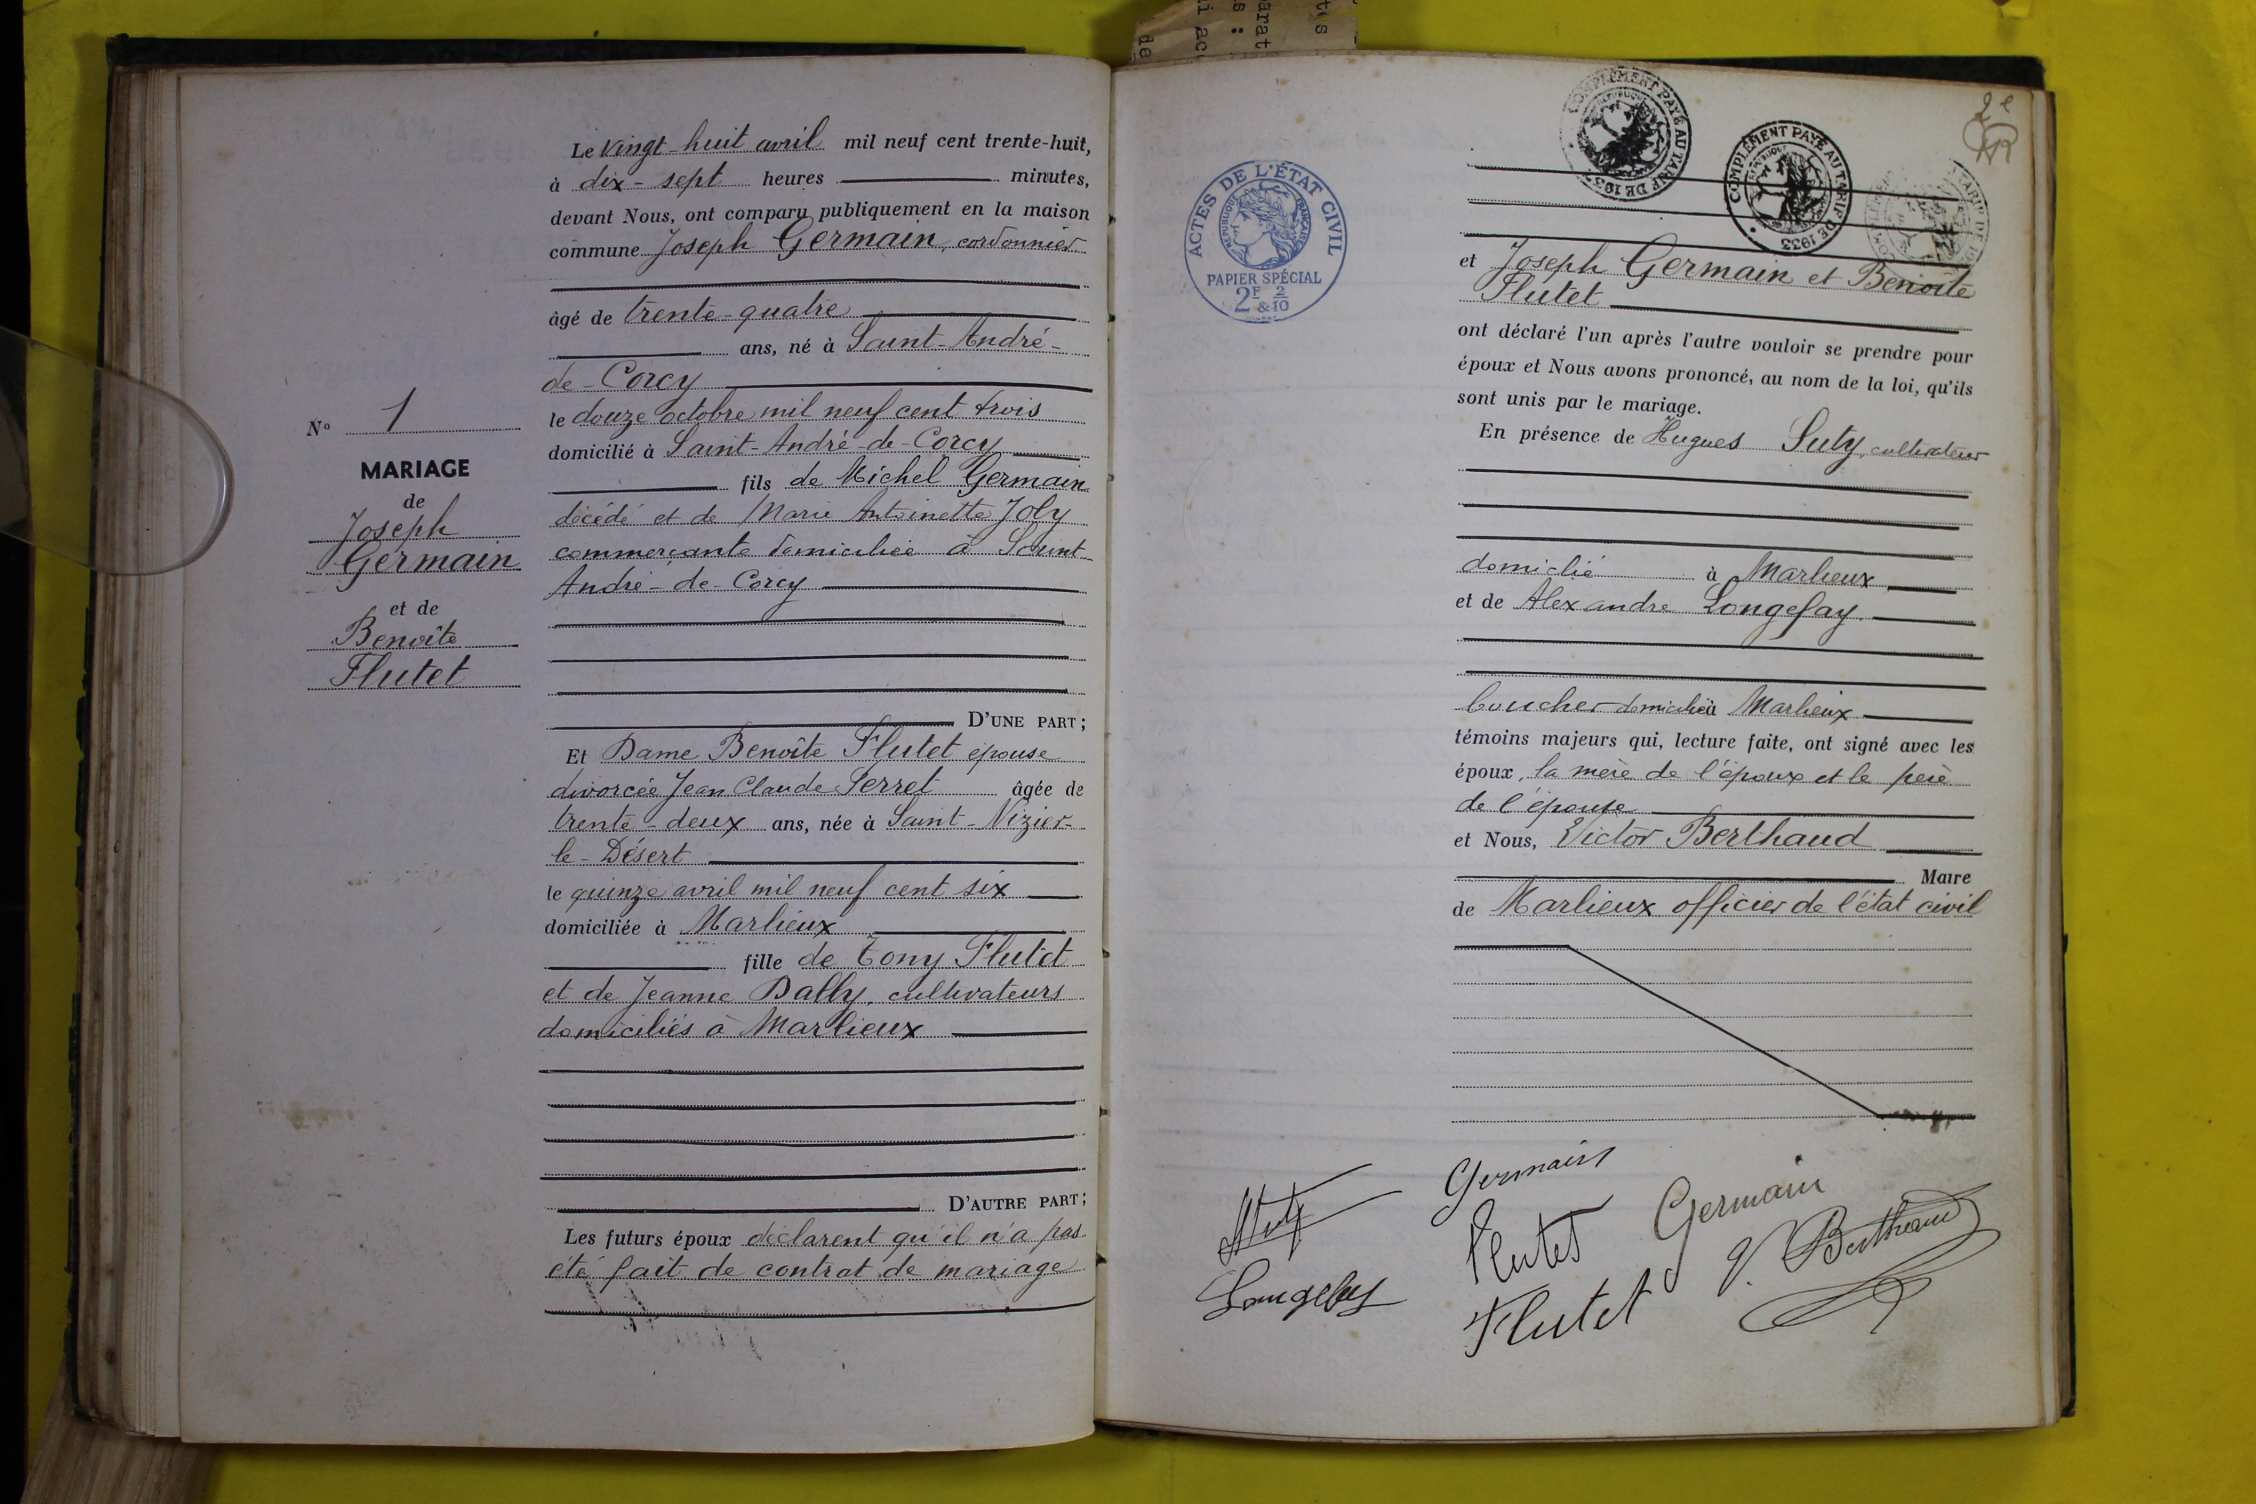 Le vingt-huit avril mil neuf cent trente-huit,
à dix-sept heures minutes,
devant Nous, ont comparu publiquement en la maison
commune Joseph Germain, cordonnier
âgé de trente-quatre
ans, né à Saint-André-
de-Corcy
le douze octobre mil neuf cent trois
domicilié à Saint-André-de-Corcy
fils de Michel Germain
décédé et de Marie Antoinette Joly
commerçante domiciliée à Saint-
André-de-Corcy
D'UNE PART;
Et Dame Benoîte Flutet épouse
divorcée Jean Claude Perret âgée de
trente-deux ans, née à Saint-Nizier-
le-Désert
le quinze avril mil neuf cent six
domiciliée à Marlieux
fille de Tony Flutet
et de Jeanne Dally, cultivateurs
domiciliés à Marlieux
D'AUTRE PART;
Les futurs époux déclarent qu'il n'a pas
été fait de contrat de mariage
N° 1
MARIAGE
de
Joseph
Germain
et de
Benoîte
Flutet
2e
COMPLÉMENT PAYÉ AU TARIF DE 1933
COMPLÉMENT PAYÉ AU TARIF DE 1933
ACTES DE L'ÉTAT CIVIL
RÉPUBLIQUE FRANÇAISE
PAPIER SPÉCIAL
2F & 2/10
et Joseph Germain et Benoîte
Flutet
ont déclaré l'un après l'autre vouloir se prendre pour
époux et Nous avons prononcé, au nom de la loi, qu'ils
sont unis par le mariage.
En présence de Hugues Suty, cultivateur
domicilié à Marlieux
et de Alexandre Longefay
boucher domicilié à Marlieux
témoins majeurs qui, lecture faite, ont signé avec les
époux, la mère de l'époux et le père
de l'épouse
et Nous, Victor Berthaud
Maire
de Marlieux officier de l'état civil
Germain
Suty
Flutet
Germain
V. Berthaud
Longefay
Flutet